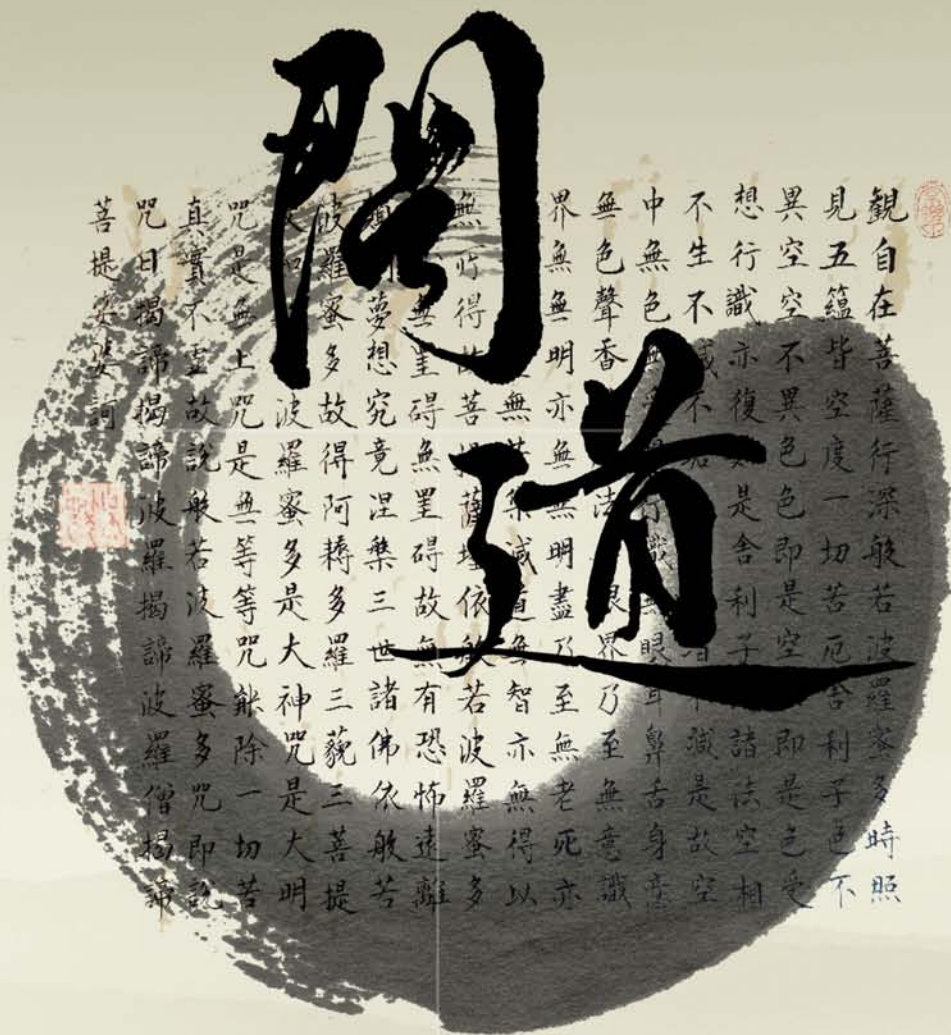 閣道
観自在菩薩行深般若波羅蜜多時照
見五蘊皆空度一切苦厄舍利子色不
異空空不異色色即是空即是色受
想行識亦復如是舍利子諸法空相
不生不滅不垢不減是故空
中無色無受行識無眼耳鼻舌身意
無色聲香法眼界乃至無意識
界無無明亦無無明盡乃至無老死亦
無苦集滅道無智亦無得以
無所得故菩提薩埵依般若波羅蜜多
無罣碍無罣碍故無有恐怖遠離
夢想究竟涅槃三世諸佛依般若
波羅蜜多故得阿耨多羅三藐三菩提
知波羅蜜多是大神咒是大明
咒是無上咒是無等等咒能除一切苦
真實不虛故說般若波羅蜜多咒即說
咒曰揭諦揭諦波羅揭諦波羅僧揭諦
菩提娑婆訶